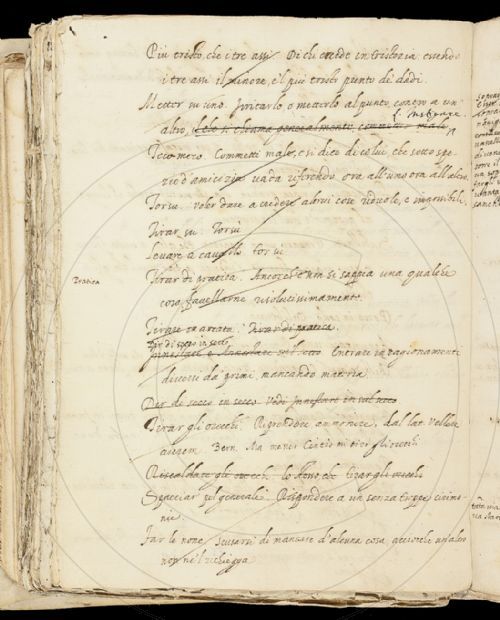 Più tristo, che i tre assi. Di chi eccede in tristizia essendo
i tre assi il minore, e 'l più tristo punto di dadi.
Metter su uno. Irritarlo o metterlo al punto, contro a un'
altro, il che si chiama generalmente, commetter male
Teco meco. Commetti male, e si dice di colui, che sotto spe-
zie d'amicizia vada riferendo ora all'uno ora all'altro.
Tor su. voler dare a credere altrui cose ridicole, e impossibile.
Tirar su. Tor sù
Levare a cavallo. Tor sù
Pratica
Tirar di pratica. Ancorchè non si sappia una qualche
cosa favellarne risolutissimamente.
Tirare in arcata. Tirar di pratica.
Far di secco in secco
Innestare e Annestare sul secco Entrare in ragionamenti
diversi da' primi, mancando materia
Dar di secco in secco. Vedi Innestare in sul secco
Tirar gli orecchi. Riprendere ammonire, dal lat. vellere
aurem. Bern. Ma monsi Cintio mi tirò gli orecchi
Riscaldare gli orecchi. lo stesso che tirar gli orecchi
Spacciar pel generale. Rispondere a un senza troppe cirimo-
nie.
Far le none. Scusarsi di mancare d'alcuna cosa, acciocchè un'altro
non ne 'l richiegga